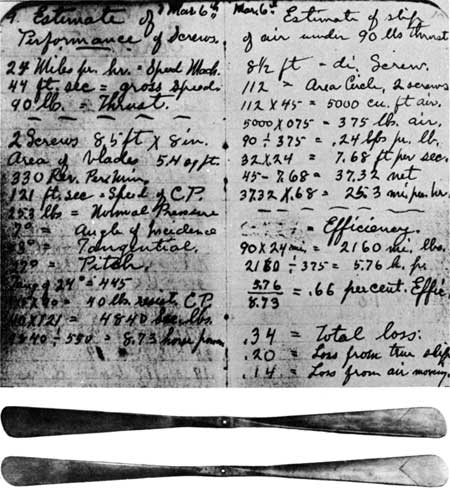 9. Estimate of Mar 6th
Performance of Screws.
24 Miles pr. hr. = Speed Mach.
44 ft. sec = gross speed
90 lb. = Thrust.
2 Screws 8.5 ft X 8 in.
Area of blades 5.4 sq ft.
330 Rev. Per Min.
121 ft. sec = Speed of C.P.
253 lbs = Normal Pressure
7° = Angle of Incidence
= Tangential.
= Pitch.
Tang of 24° = .445
= 40 lbs. resist. C.P.
X 121 = 4840 sec. lbs.
4840 ÷ 550 = 8.73 horse power
Mar. 6th
Estimate of slip
of air under 90 lbs thrust
8½ ft - di. Screw.
112 = Area Circle, 2 screws
112 X 45 = 5000 cu. ft air.
5000 X 075 = 375 lbs. air.
90 ÷ 375 = .24 lbs pr. lb.
32 X 24 = 7.68 ft per sec.
45 - 7.68 = 37.32 net
37.32 X .68 = 25.3 mi. per. hr.
= Efficiency.
90 X 24 mi. = 2160 mi. lbs.
2160 ÷ 375 = 5.76 h. pr.
5.76
8.73 = .66 percent. Effic.
.34 = Total loss.
.20 = Loss from true slip
.14 = Loss from air moving